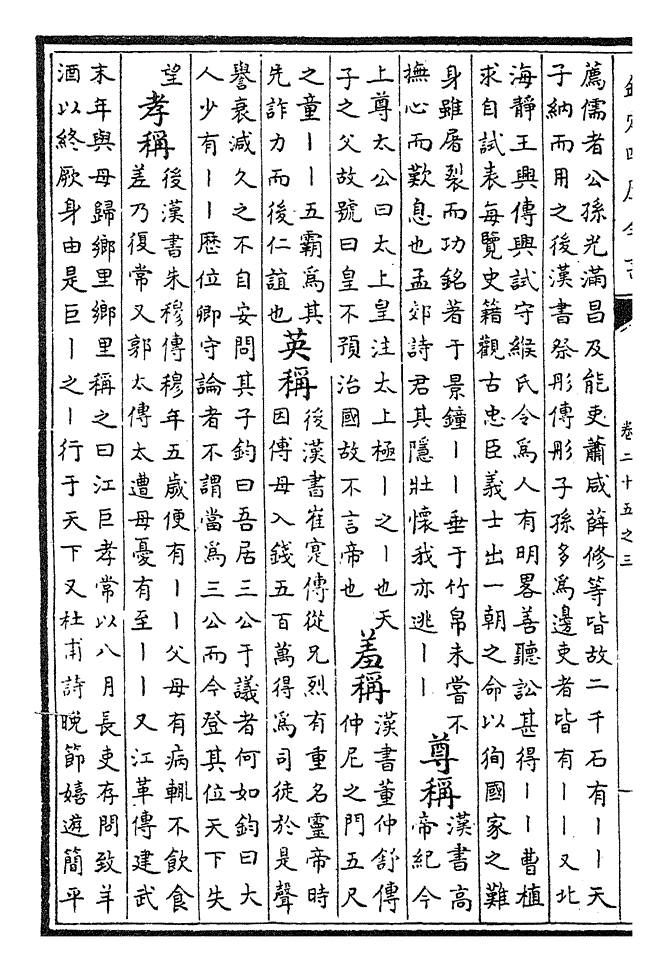 欽定四庫全書
卷二十五之三
薦儒者公孫光滿昌及能吏蕭咸薛修等皆故二千石有丨丨天
子納而用之後漢書祭肜傳肜子孫多為邊吏者皆有丨丨又北
海靜王興傳興試守緱氏令為人有明畧善聽訟甚得丨丨曹植
求自試表每覽史籍觀古忠臣義士出一朝之命以狥國家之難
身雖屠裂而功銘著于景鐘丨丨垂于竹帛未嘗不
撫心而歎息也孟郊詩君其隱壯懷我亦逃丨丨
尊稱
漢書高
帝紀今
上尊太公曰太上皇注太上極丨之丨也天
子之父故號曰皇不預治國故不言帝也
羞稱
漢書董仲舒傳
仲尼之門五尺
之童丨丨五霸為其
先詐力而後仁誼也
英稱
後漢書崔寔傳從兄烈有重名靈帝時
因傅母入錢五百萬得為司徒於是聲
譽衰減久之不自安問其子鈞曰吾居三公于議者何如鈞曰大
人少有丨丨歷位卿守論者不謂當為三公而今登其位天下失
望
孝稱
後漢書朱穆傳穆年五歲便有丨丨父母有病輒不飲食
差乃復常又郭太傳太遭母憂有至丨丨又江革傳建武
末年與母歸鄉里鄉里稱之曰江巨孝常以八月長吏存問致羊
酒以終厥身由是巨丨之丨行于天下又杜甫詩晚節嬉遊簡平